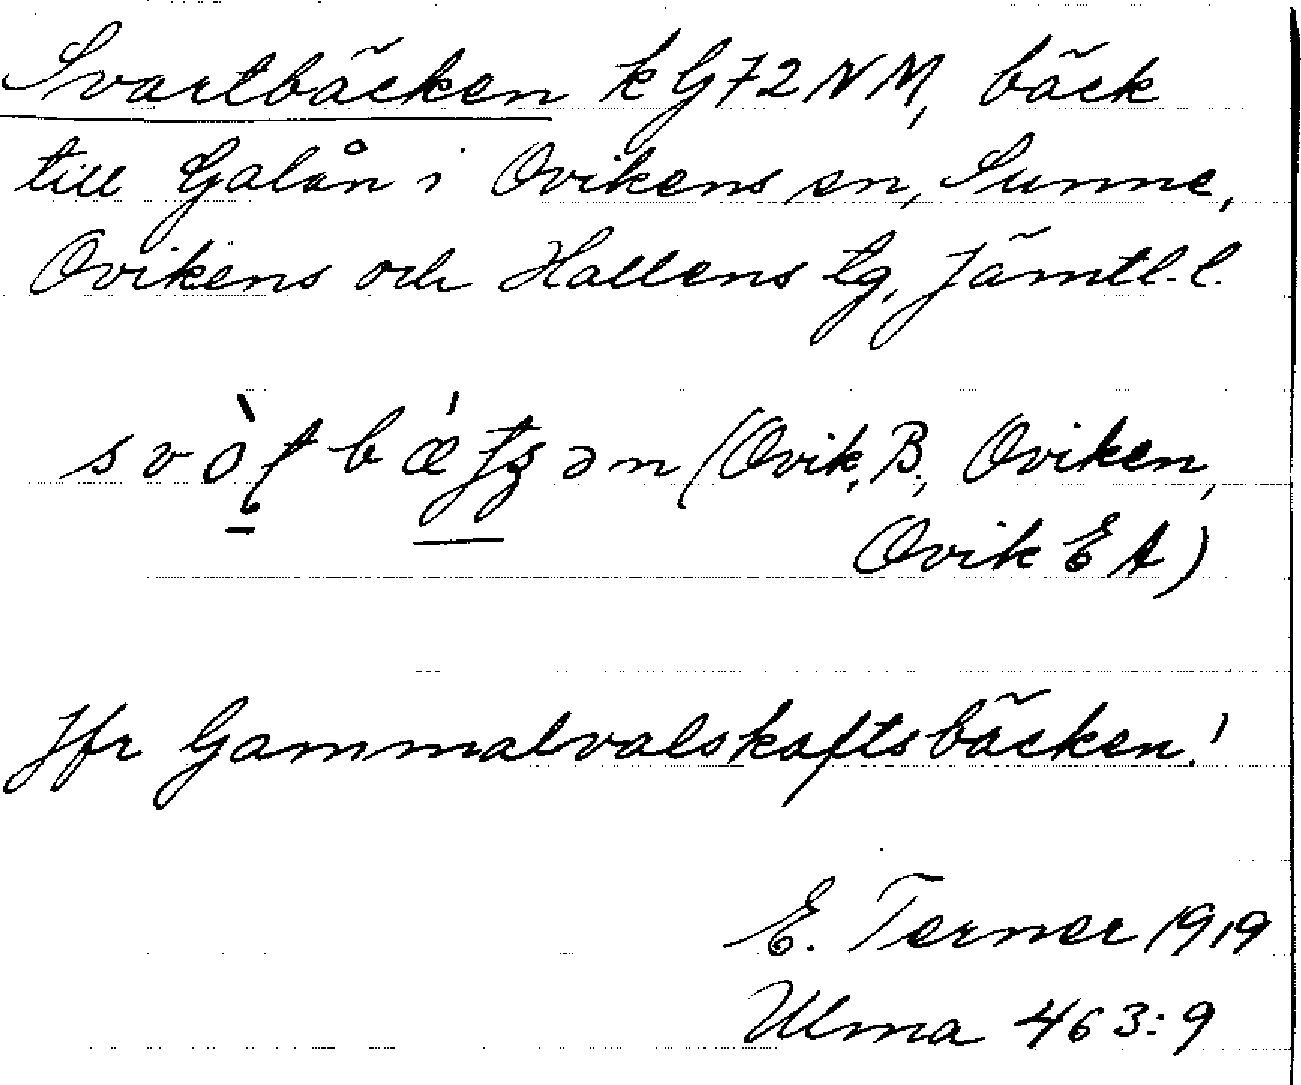 Svartbäcken k G72NM, bäck
till Galån i Ovikens sn, Sunne,
Ovikens och Hallens tg, Jämtl. l.
(Ovik, B., Oviken,
Ovik E A)
Jfr Gammalvalskaftsbäcken!
E. Terner 1919
Ulma 463:9